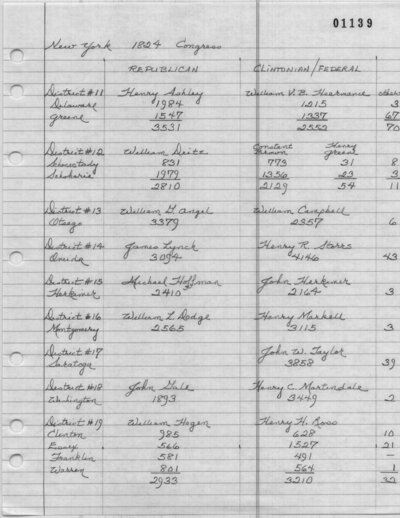 01139
New York 1824 Congress
REPUBLICAN CLINTONIAN/FEDERAL others
District #11 Henry Ashley William V.B. Heermance
Delaware 1984 1215 3
Greene 1547 1337 67
3531 2552 70
District #12 William Deitz Constant Henry
Greene
Schenectady 831 773 31 8
Schoharie 1979 1356 23 3
2810 2129 54 11
District #13 William G. Angel William Campbell
Otsego 3379 2357 6
District #14 James Lynch Henry R. Storrs
Oneida 3094 4146 43
District #15 Michael Hoffman John Herkimer
Herkimer 2410 2164 3
District #16 William L Dodge Henry Markell
Montgomery 2565 3115 3
District #17 John W. Taylor
Saratoga 3858 39
District #18 John Gale Henry C. Martindale
Washington 1893 3449 2
District #19 William Hogen Henry H. Ross
Clinton 985 628 10
Essex 566 1527 21
Franklin 581 491 —
Warren 801 564 1
2933 3210 32